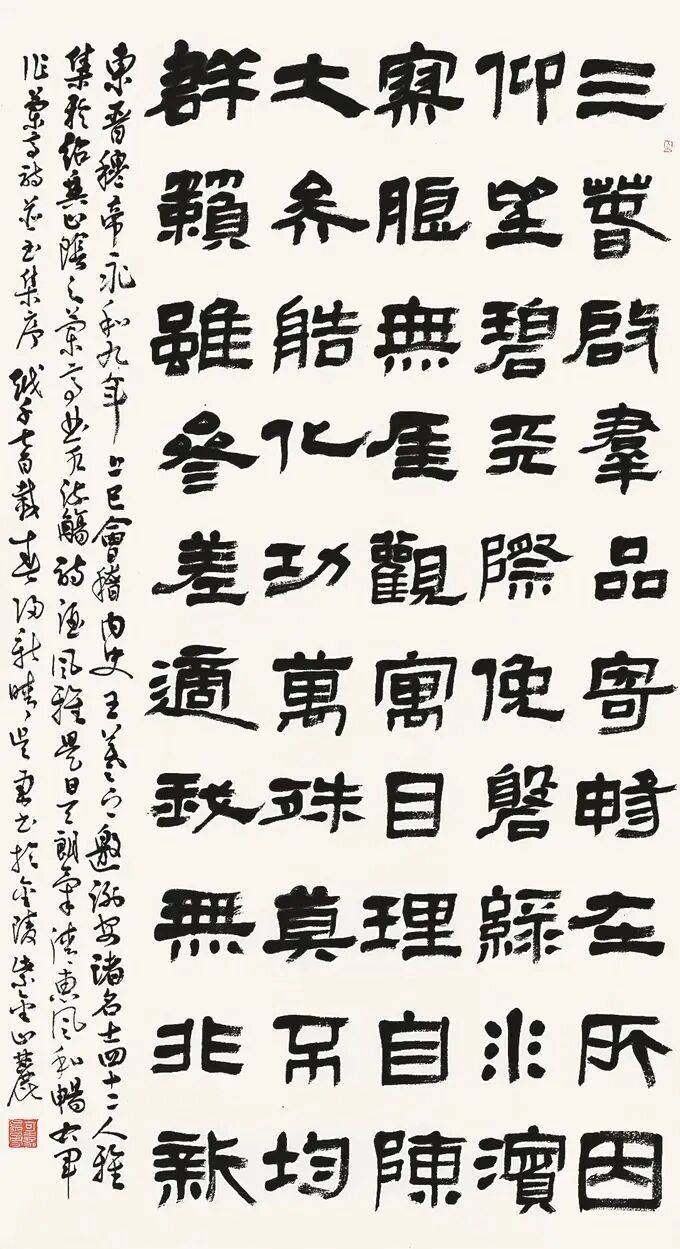 三春啟羣品寄暢在所因
仰望碧天際俛磐綠水濱
寥朗無厓觀寓目理自陳
大矣艁化功萬殊莫不均
群籟雖參差適我無非新
東晋穆帝永和九年上巳會稽內史王羲之邀謝安諸名士四十二人雅
集於紹興山陰之蘭亭曲水流觴詩酒風雅是日天朗氣清惠風和暢右軍
作蘭亭詩並書集序越千七百載春新晴書於金陵紫金山麓